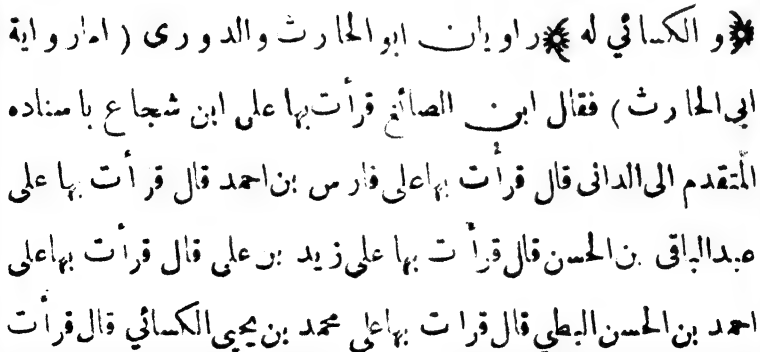 ﴿و الكسائي له﴾ راويان ابو الحارث والدورى ( اما رواية
ابى الحارث) فقال ابن الصائغ قرأت بها على ابن شجاع باسناده
المتقدم الى الدانى قال قرأت بها على فارس بن احمد قال قرأت بها على
عبد الباقى بن الحسن قال قرأت بها على زيد بن على قال قرأت بها على
احمد بن الحسن البطي قال قرات بها على محمد بن يحيى الكسائي قال قرأت